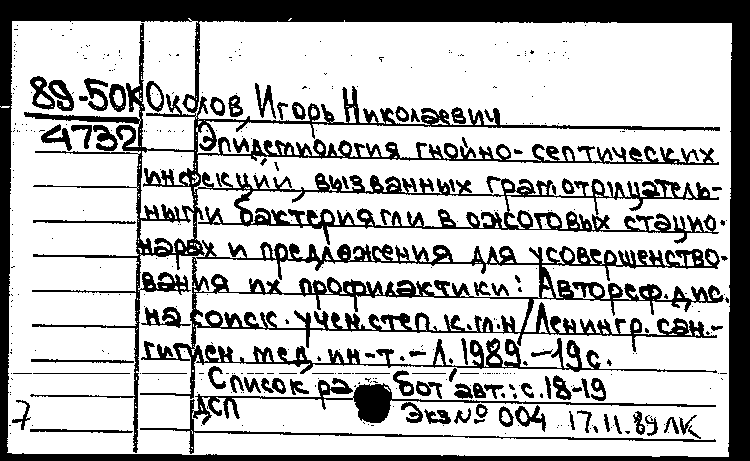 89-50К Околов, Игорь Николаевич
4732 Эпидемиология гнойно-септических
инфекций, вызванных грамотрицатель-
ными бактериями в ожоговых стацио-
нарах и предложения для усовершенство-
вания их профилактики: Автореф. дис.
на соиск. учен. степ. к.м.н/Ленингр. сан.-
гигиен. мед. ин-т.-Л. 1989.-19 с.
Список работ авт.: с.18-19
7 ДСП Экз № 004 17.11.89 ЛК